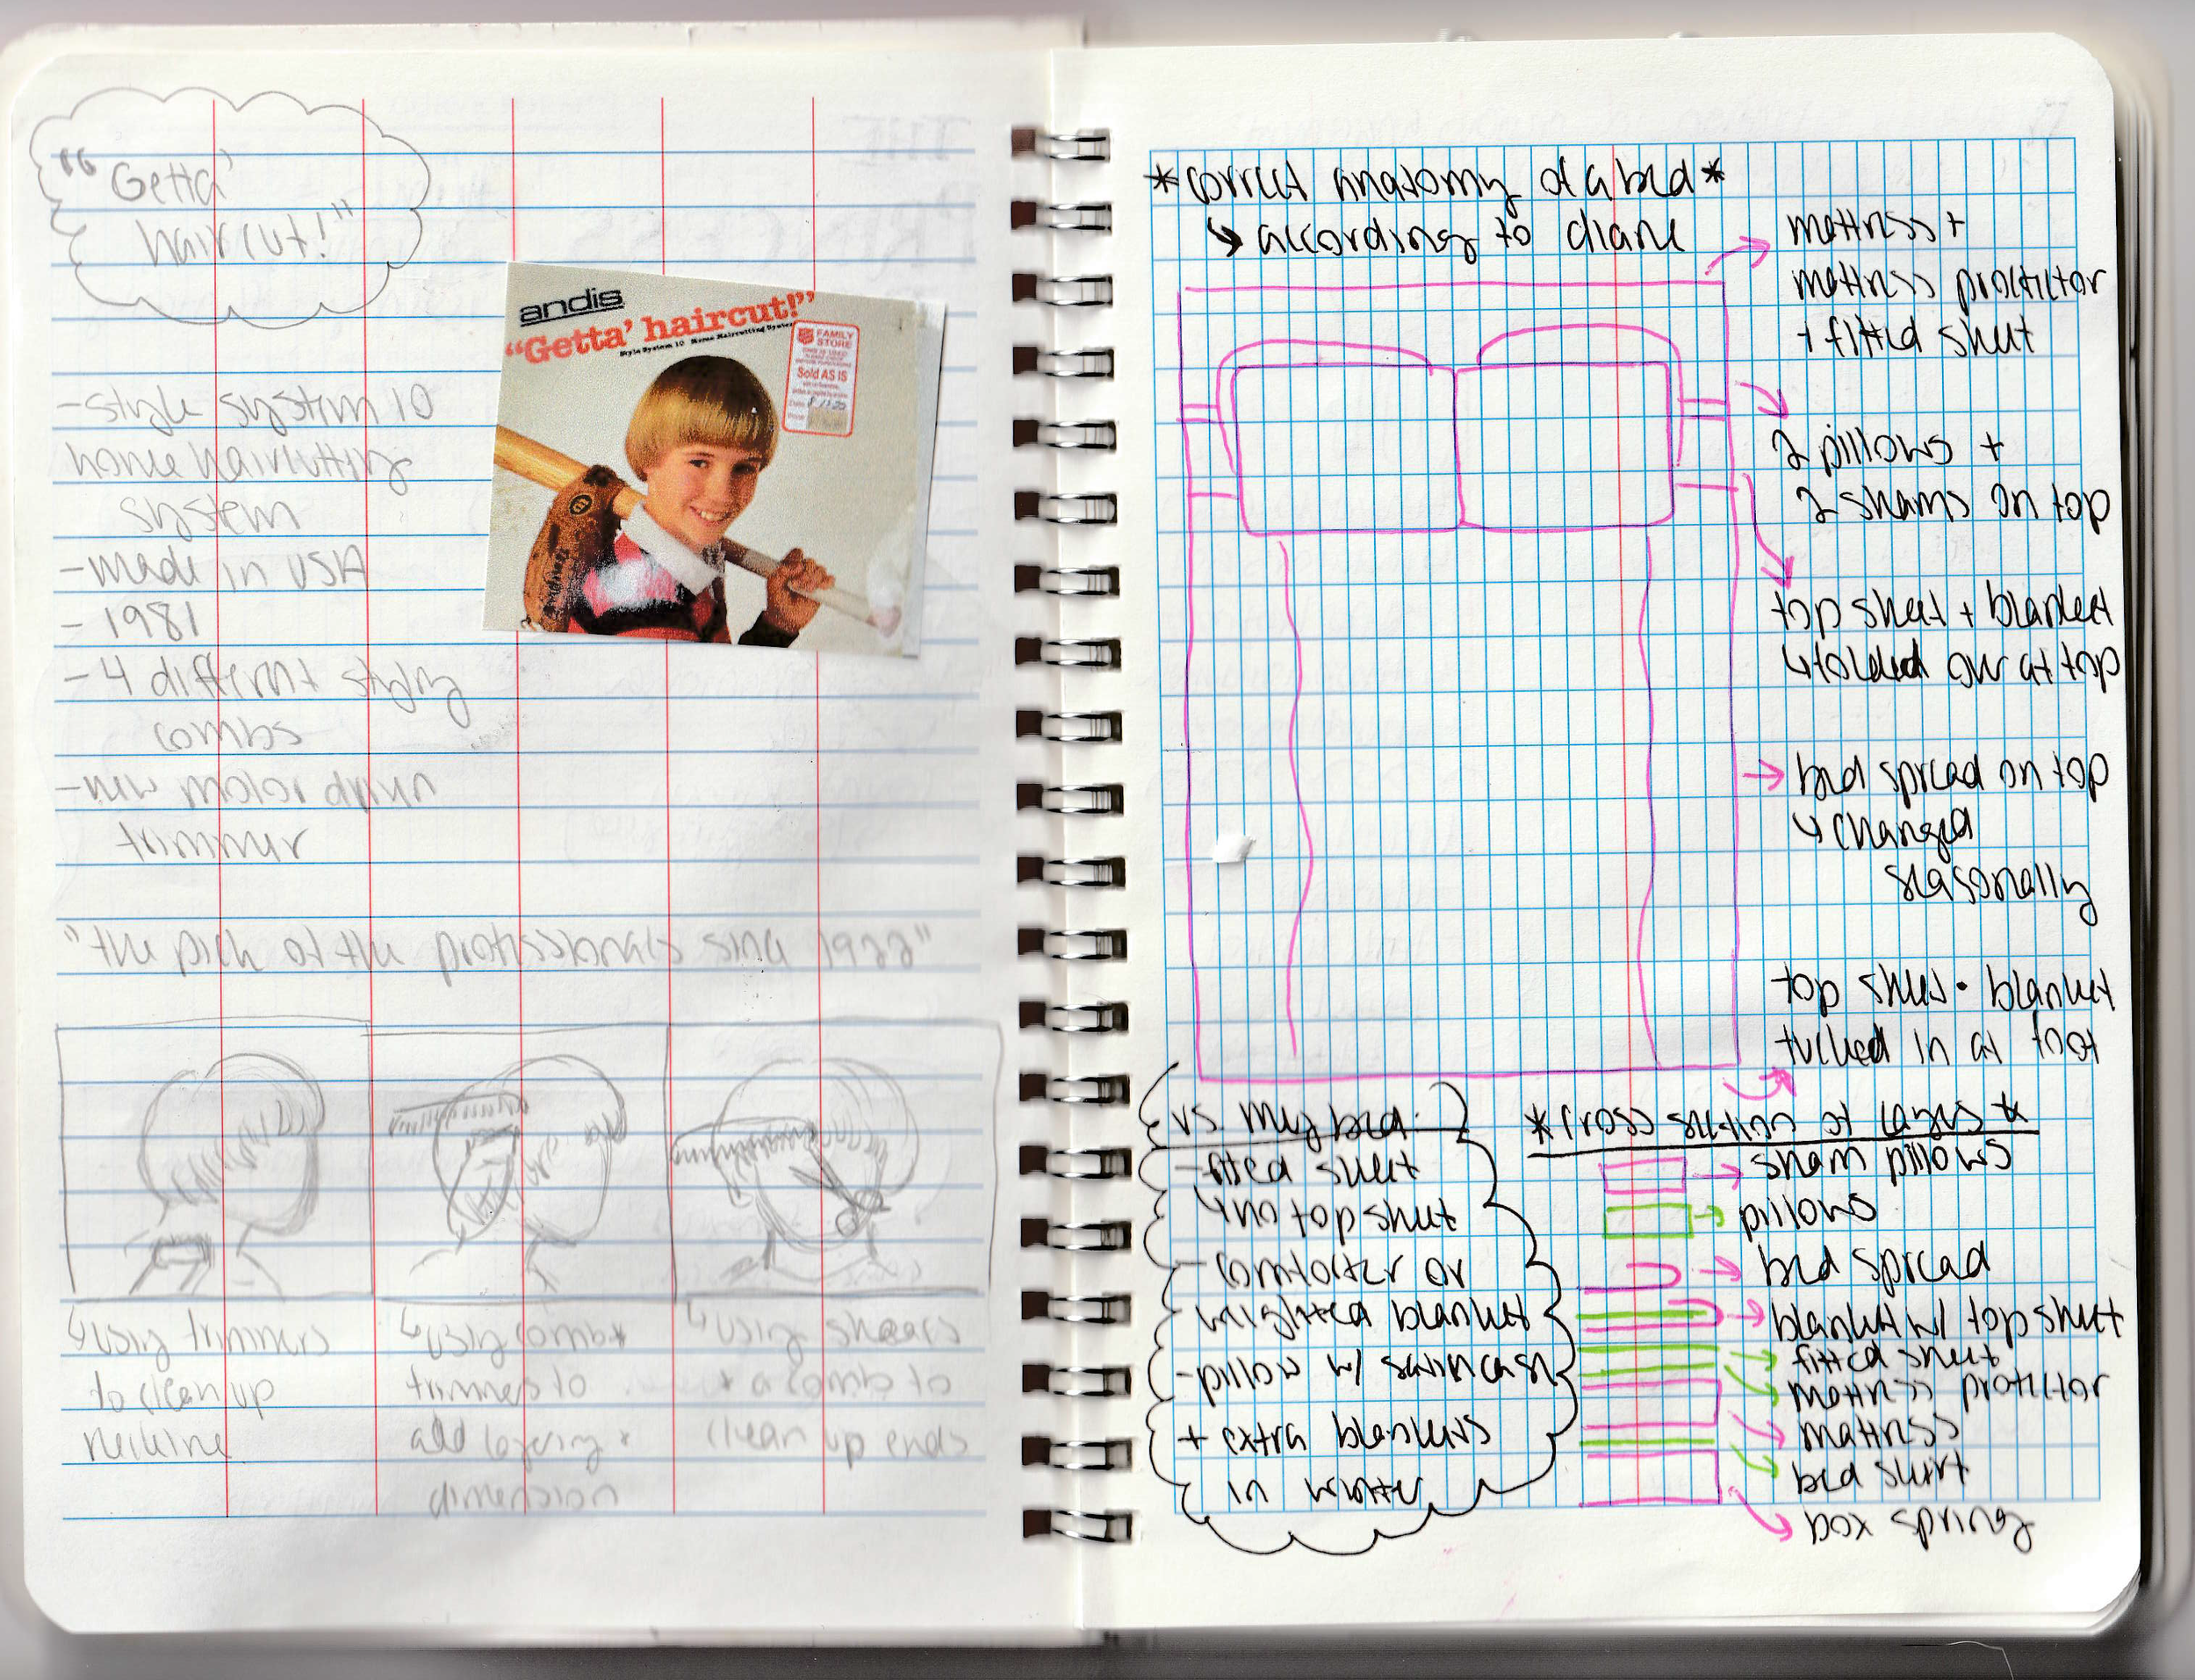 "Getta'
haircut!"
andis
"Getta' haircut!"
Style System 10 Home Haircutting System
FAMILY
STORE
Sold AS IS
-style system 10
home haircutting
system
-made in USA
- 1981
- 4 different styling
combs
-new motor driven
trimmer
"the pick of the professionals since 1922"
↳using trimmers
to clean up
neckline
↳using comb +
trimmers to
add layering +
dimension
↳using shears
+ a comb to
clean up ends
*correct anatomy of a bed*
↳ according to diane
→ mattress +
mattress protector
+ fitted sheet
2 pillows +
2 shams on top
top sheet + blanket
↳folded over at top
→ bed spread on top
↳ changed
seasonally
top sheet • blanket
tucked in at foot
vs. my bed:
-fitted sheet
↳no top sheet
- comforter or
weighted blanket
-pillow w/ satin case
+ extra blankets
in winter
*cross section of layers*
→ sham pillows
→ pillows
→ bed spread
→ blanket w/ top sheet
→ fitted sheet
→ mattress protector
→ mattress
→ bed skirt
→ box spring